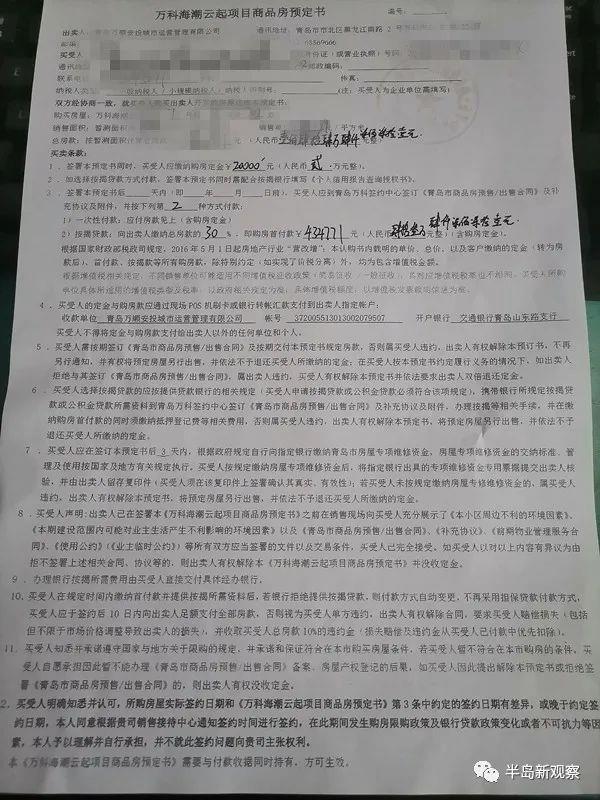 万科海潮云起项目商品房预定书
编号：
出卖人：青岛万顺安投城市运营管理有限公司 通讯地址：青岛市市北区黑龙江南路 2 号
买受人
通讯地
联系电 传真：
纳税人类 一般纳税人 / 小规模纳税人 （注：买受人为企业单位需填写）
双方经协商一致，就
购买房屋：万科海
销售面积：暂测面积 平方
总房款：按暂测面积
买卖条款：
1．签署本预定书同时，买受人应缴纳购房定金￥20000 元（人民币 贰 万元整）。
2．如选择按揭贷款方式付款，签署本预定书同时需配合按揭银行填写《个人信用报告查询授权书》。
3．签署本预定书后 天内（即 年 月 日前），买受人应到青岛万科签约中心签订《青岛市商品房预售/出售合同》及补
充协议及附件，并按下列第 2 种方式付款：
1）一次性付款：应付房款见上（含购房定金）
2）按揭贷款：向出卖人缴纳总房款的 30 %；即购房首付款￥434771 元（人民币 元整）（含购房定金）。
根据国家财政部税政司规定，2016 年 5 月 1 日起房地产行业“营改增”，本认购书内载明的单价、总价、以及客户缴纳的定金（转为房
款后）、首付款、按揭款等所有购房款，除特别约定（如实现了价税分离）外，均为包含增值税金额。
4．买受人的定金与购房款应通过现场 POS 机刷卡或银行转帐汇款支付到出卖人指定帐户：
收款单位 青岛万顺安投城市运营管理有限公司 帐号 372005513013002079507 开户银行 交通银行青岛山东路支行
买受人不得将定金与购房款支付给出卖人以外的任何单位和个人。
5．买受人需按期签订《青岛市商品房预售/出售合同》及按期交付本预定书规定房款，否则属买受人违约，出卖人有权解除本预订书，不再
另行通知，并有权将预定房屋另行出售，并依法不予退还买受人所缴纳的定金；在买受人按本预定书约定履行义务的情况下，如出卖人
拒绝与其签订《青岛市商品房预售/出售合同》，属出卖人违约，买受人有权解除本预定书并依法要求出卖人双倍退还定金。
6．买受人选择按揭贷款的应按提供贷款银行的相关规定（买受人申请按揭贷款或公积金贷款必须符合该项规定），携带银行所规定按揭贷
款或公积金贷款所需资料到青岛万科签约中心签订《青岛市商品房预售/出售合同》及补充协议及附件，办理按揭等相关手续，并在缴
纳购房首付款的同时须缴纳抵押登记费等相关费用，否则属买受人违约，出卖人有权解除本预定书，将预定房屋另行出售，并依法不予
退还买受人所缴纳的定金。
7．买受人应在签订本预定书后 3 天内，根据政府规定自行向指定银行缴纳青岛市房屋专项维修资金，房屋专项维修资金的交纳标准、管
理及使用按国家及地方有关规定执行。买受人按规定缴纳房屋专项维修资金后，将指定银行出具的专项维修资金专用票据提交出卖人核
验，并由出卖人留存复印件（买受人须在该复印件上签署确认其真实、有效性）；若买受人未按规定缴纳房屋专项维修资金的，属买受人
违约，出卖人有权解除本预定书，将预定房屋另行出售，并依法不予退还买受人所缴纳的定金。
8．买受人声明：出卖人已在签署本《万科海潮云起项目商品房预定书》之前在销售现场向买受人充分展示了《本小区周边不利的环境因素》、
《本期建设范围内可能对业主生活产生不利影响的环境因素》以及《青岛市商品房预售/出售合同》、《补充协议》、《前期物业管理服务合
同》、《使用公约》（《业主临时公约》）等所有双方应当签署的文件以及交易条件，买受人已完全接受。如买受人以对以上内容有异议为由
拒不签署上述相关合同、协议等的，则出卖人有权解除本《万科海潮云起项目商品房预定书》并没收定金。
9．办理银行按揭所需费用由买受人直接交付具体经办银行。
10．买受人在规定时间内缴纳首付款并提供按揭所需资料后，若银行拒绝提供按揭贷款，则付款方式自动变更，不再采用担保贷款付款方式，
买受人应于签约后 10 日内向出卖人足额支付全部房款，否则视为买受人单方违约，出卖人有权解除合同，要求买受人赔偿损失（包括
但不限于市场价格调整导致出卖人的损失），并收取买受人总房款 10%的违约金（损失赔偿及违约金从买受人已付款中优先扣除）。
11．买受人知悉并承诺遵守国家与地方关于限购的规定，并承诺和保证符合在本市购买房屋条件，若买受人暂不符合在本市购房的条件，买
受人自愿承担因此暂不能办理《青岛市商品房预售/出售合同》备案、房屋产权登记的后果，如买受人因此提出解除本预定书或拒绝签
署《青岛市商品房预售/出售合同》的，则出卖人有权没收定金。
2．买受人明确知悉并认可，所购房屋实际签约日期和《万科海潮云起项目商品房预定书》第 3 条中约定的签约日期有差异，或晚于约定签
约日期，本人同意根据贵司销售接待中心通知签约时间进行签约，在此期间发生购房限购政策及银行贷款政策变化或者不可抗力等因
素，本人予以理解并自行承担，并不就此签约问题向贵司主张权利。
本《万科海潮云起项目商品房预定书》需要与付款收据同时持有，方可生效。
半岛新观察